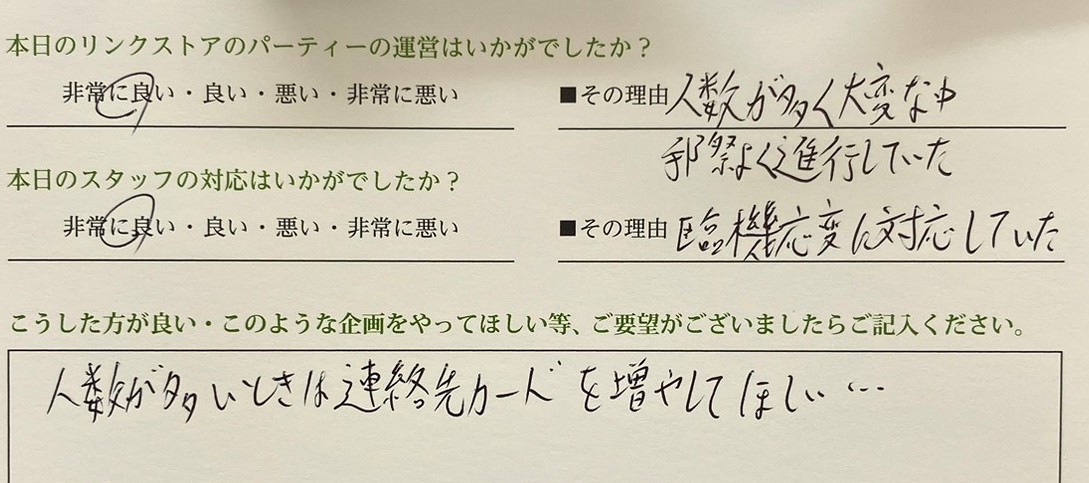 本日のリンクストアのパーティーの運営はいかがでしたか？
非常に良い・良い・悪い・非常に悪い
■その理由 人数が多く大変な中
手際よく進行していた
本日のスタッフの対応はいかがでしたか？
非常に良い・良い・悪い・非常に悪い
■その理由 臨機応変に対応していた
こうした方が良い・このような企画をやってほしい等、ご要望がございましたらご記入ください。
人数が多いときは連絡先カードを増やしてほしい…